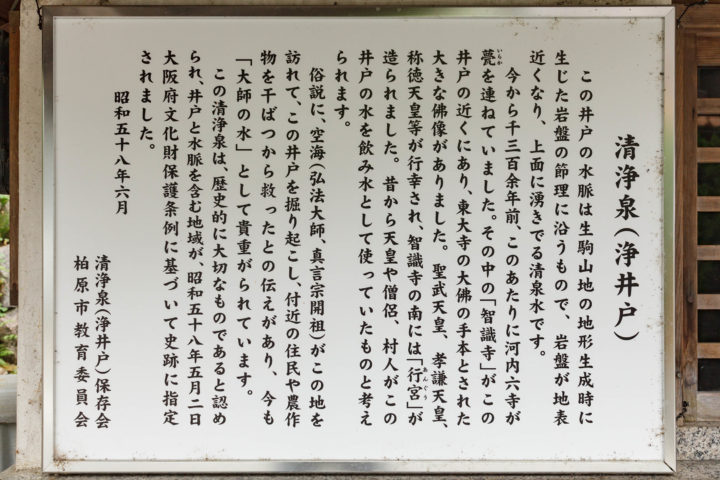 清浄泉(浄井戸)
この井戸の水脈は生駒山地の地形生成時に
生じた岩盤の節理に沿うもので、岩盤が地表
近くなり、上面に湧きでる清泉水です。
今から千三百余年前、このあたりに河内六寺が
甍を連ねていました。その中の「智識寺」がこの
いらか
井戸の近くにあり、東大寺の大佛の手本とされた
大きな佛像がありました。聖武天皇、孝謙天皇、
称徳天皇等が行幸され、智識寺の南には「行宮」が
あんぐう
造られました。昔から天皇や僧侶、村人がこの
井戸の水を飲み水として使っていたものと考え
られます。
俗説に、空海(弘法大師、真言宗開祖)がこの地を
訪れて、この井戸を掘り起こし、付近の住民や農作
物を干ばつから救ったとの伝えがあり、今も
「大師の水」として貴重がられています。
この清浄泉は、歴史的に大切なものであると認め
られ、井戸と水脈を含む地域が、昭和五十八年五月二日
大阪府文化財保護条例に基づいて史跡に指定
されました。
昭和五十八年六月
清浄泉(浄井戸)保存会
柏原市教育委員会